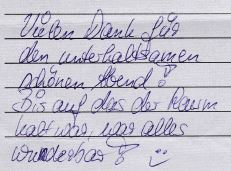 Vielen Dank für
den unterhaltsamen
schönen Abend!
Bis auf das der Raum
kalt war, war alles
wunderbar! :)